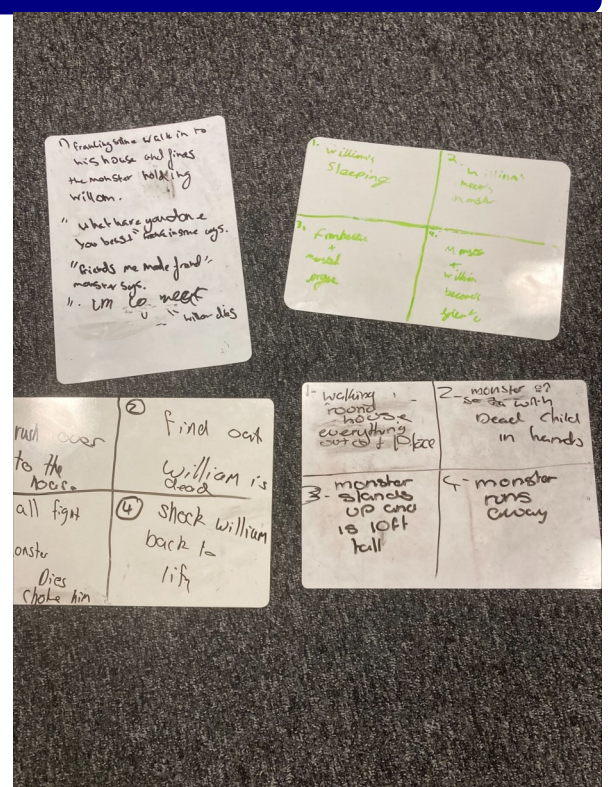 1) frankingstine walk in to
his house and fines
the monster holding
willom.
" what have you done
you beast" frankinsine says.
"friends me made frand",
monster says.
". im so meet
u " willom dies
1. william
Slaeping
2. william
meets
monster
3. Frankestie
+
monstel
argue
4. Monster
+
william
become
rush over
to the
house
② find out
william is
dead
all fight
onster
Dies
choke him
④ shock william
back to
life
1- walking
round
house
everything
out of place
2- monster
with
Dead child
in hands
3- monster
stands
up and
is 10ft
tall
4- monster
runs
away